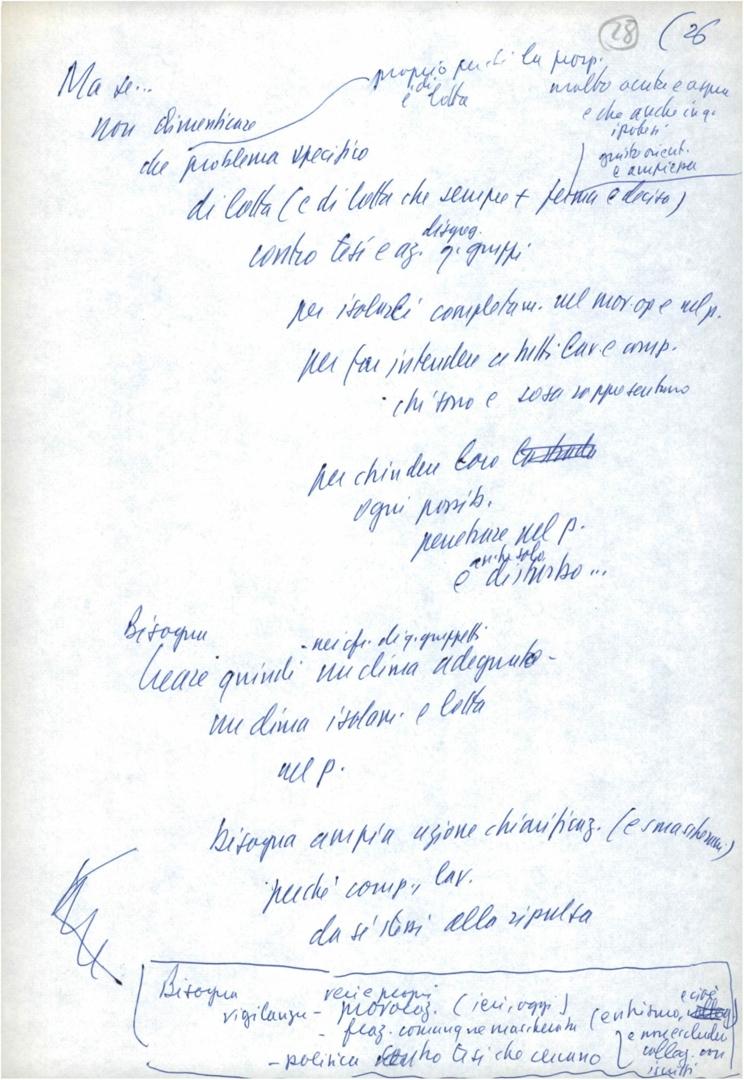 28 (26
Ma se...
proprio perché la prosp.
è di lotta
molto acuta e aspra
e che anche in q.
ipotesi
giusto orient.
e ampiezza
non dimenticare
che problema specifico
di lotta (e di lotta che sempre + ferma e decisa)
contro tesi e az. disgreg. q. gruppi
per isolarli completam. nel mov. op e nel p.
per far intendere a tutti lav. e comp.
chi sono e cosa rappresentano
per chiudere loro la strada
ogni possib.
penetrare nel p.
anche solo
e disturbo...
Bisogna
- nei cfr. di q. gruppetti
creare quindi un clima adeguato -
un clima isolam. e lotta
nel p.
bisogna ampia azione chiarificaz. (e smascheram.)
perché comp., lav.
da sé stessi alla ripulsa
Bisogna
vigilanza - vere e proprie
provocaz. (ieri, oggi)
- fraz. comunque mascherata (entrismo, e cioè
e non escludere
collag. con
iscritti
- politica contro tesi che cercano